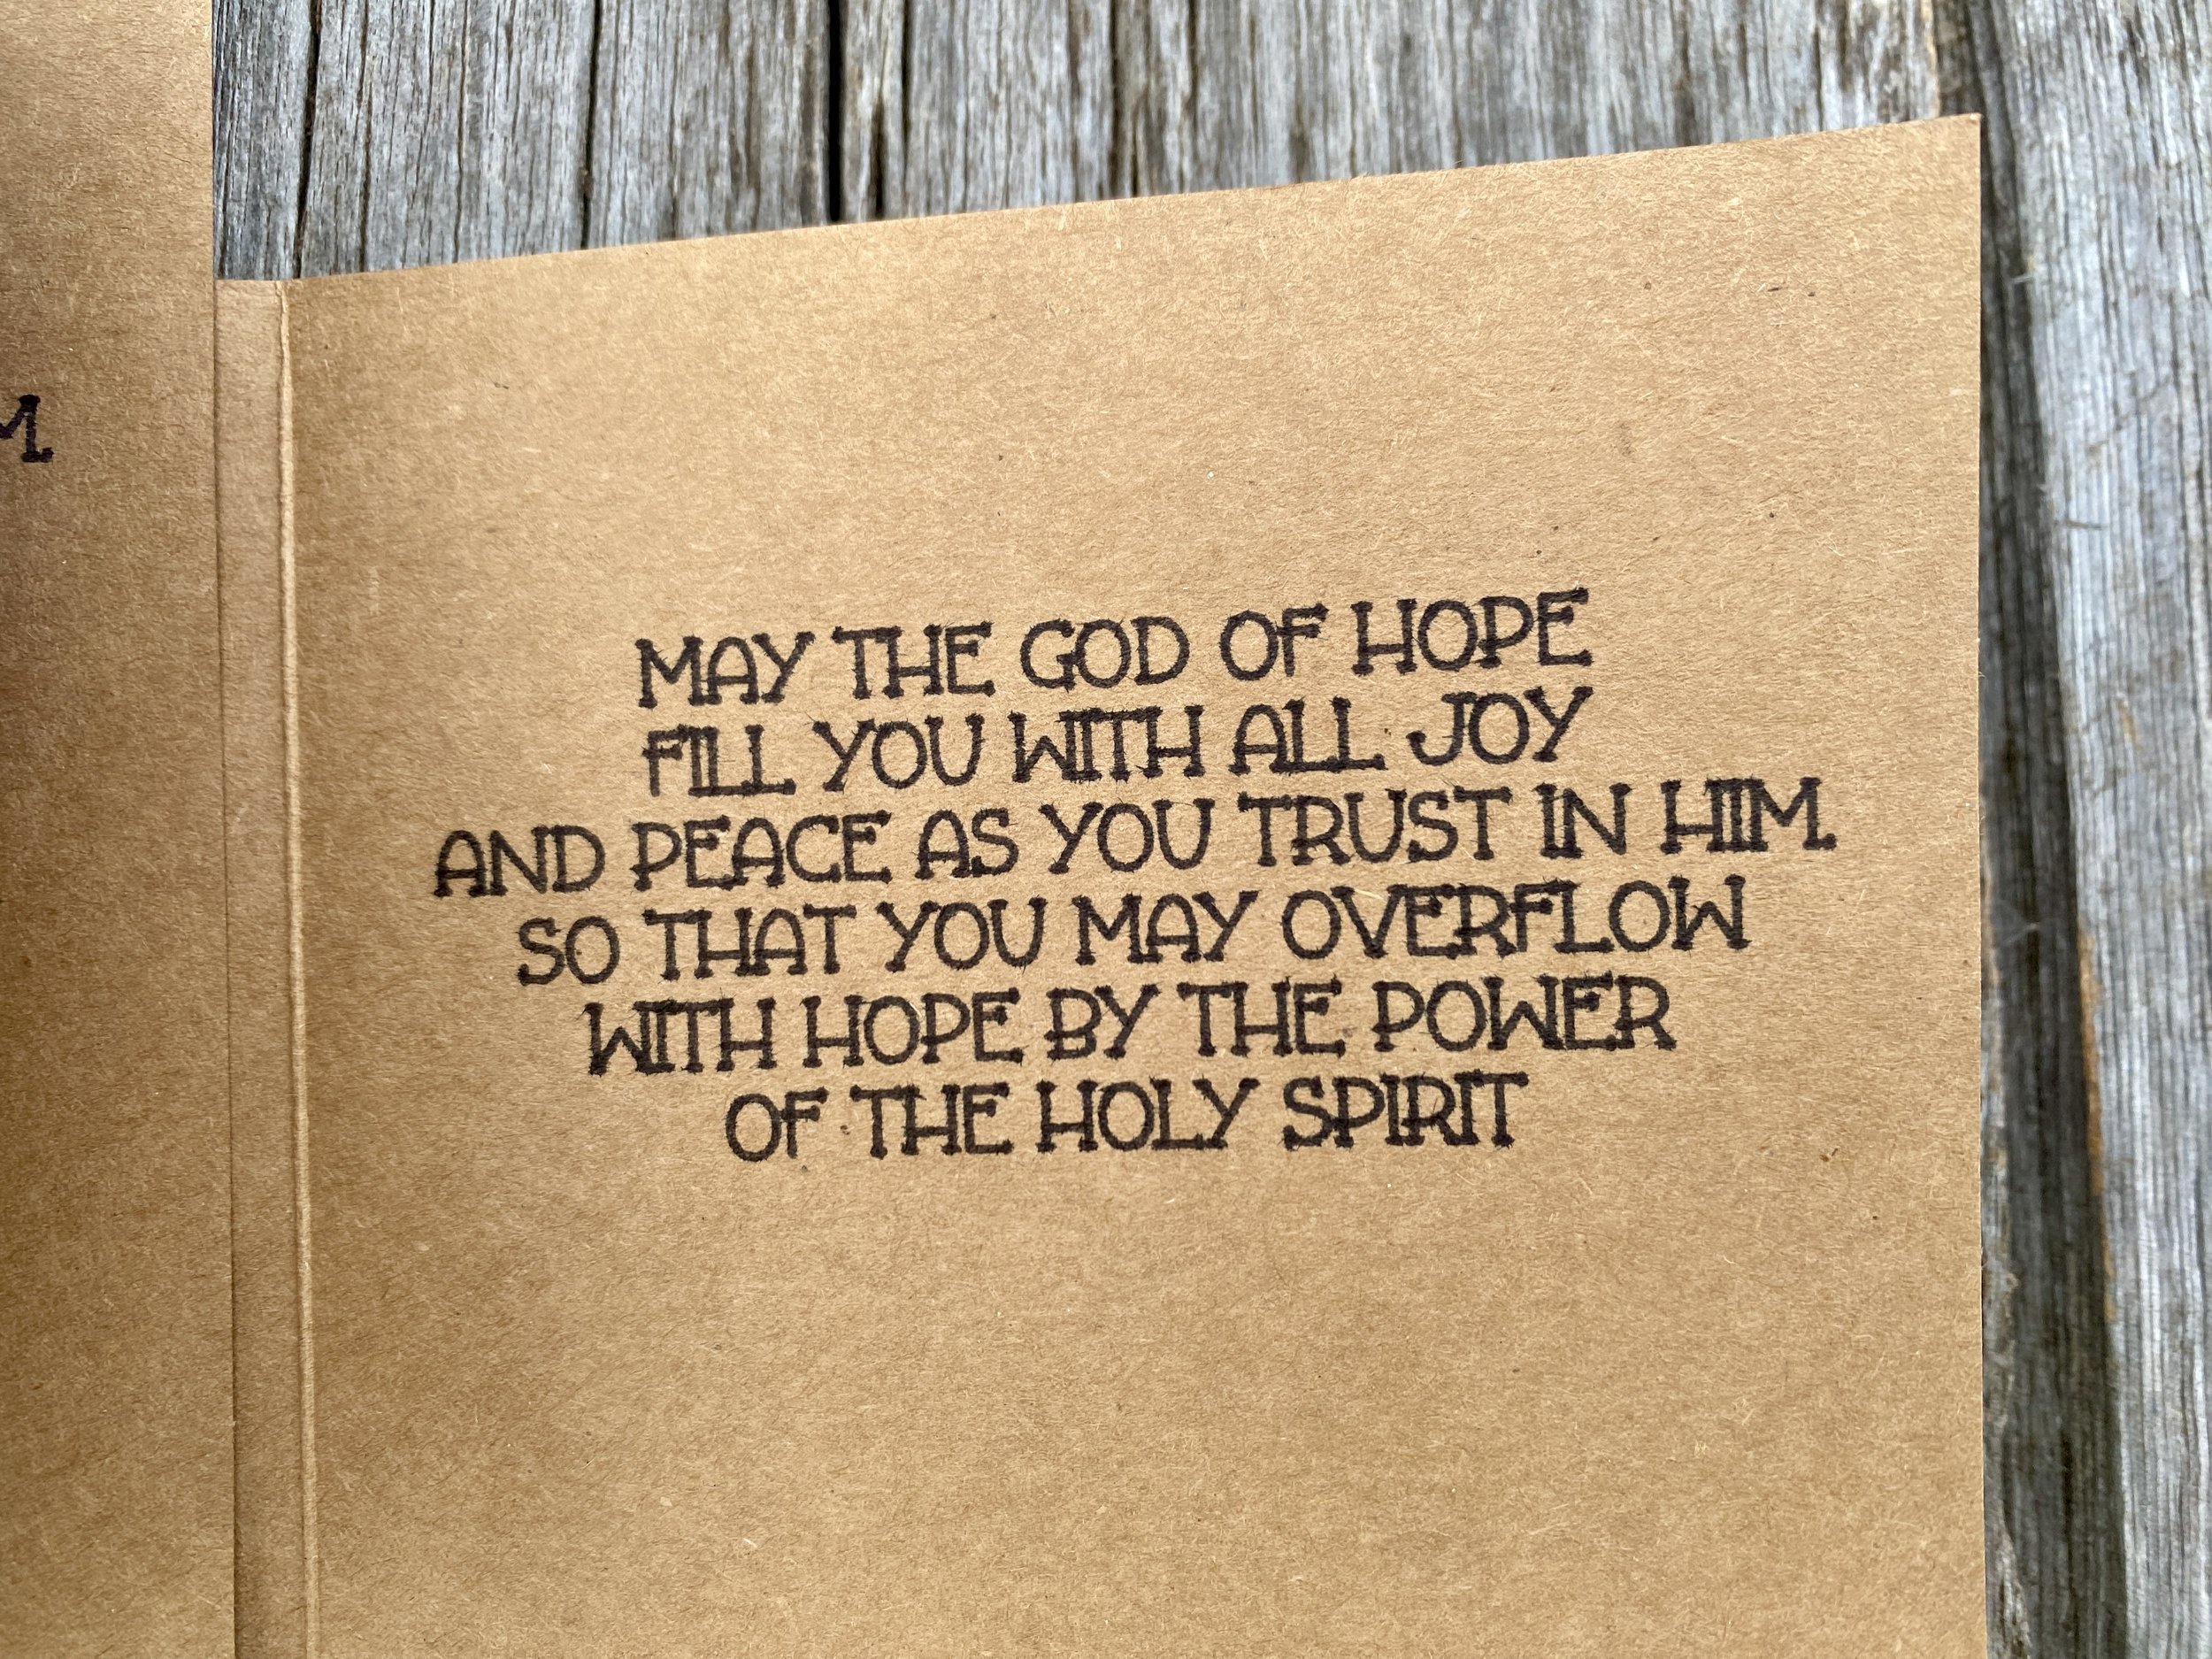 M
MAY THE GOD OF HOPE
FILL YOU WITH ALL JOY
AND PEACE AS YOU TRUST IN HIM.
SO THAT YOU MAY OVERFLOW
WITH HOPE BY THE POWER
OF THE HOLY SPIRIT